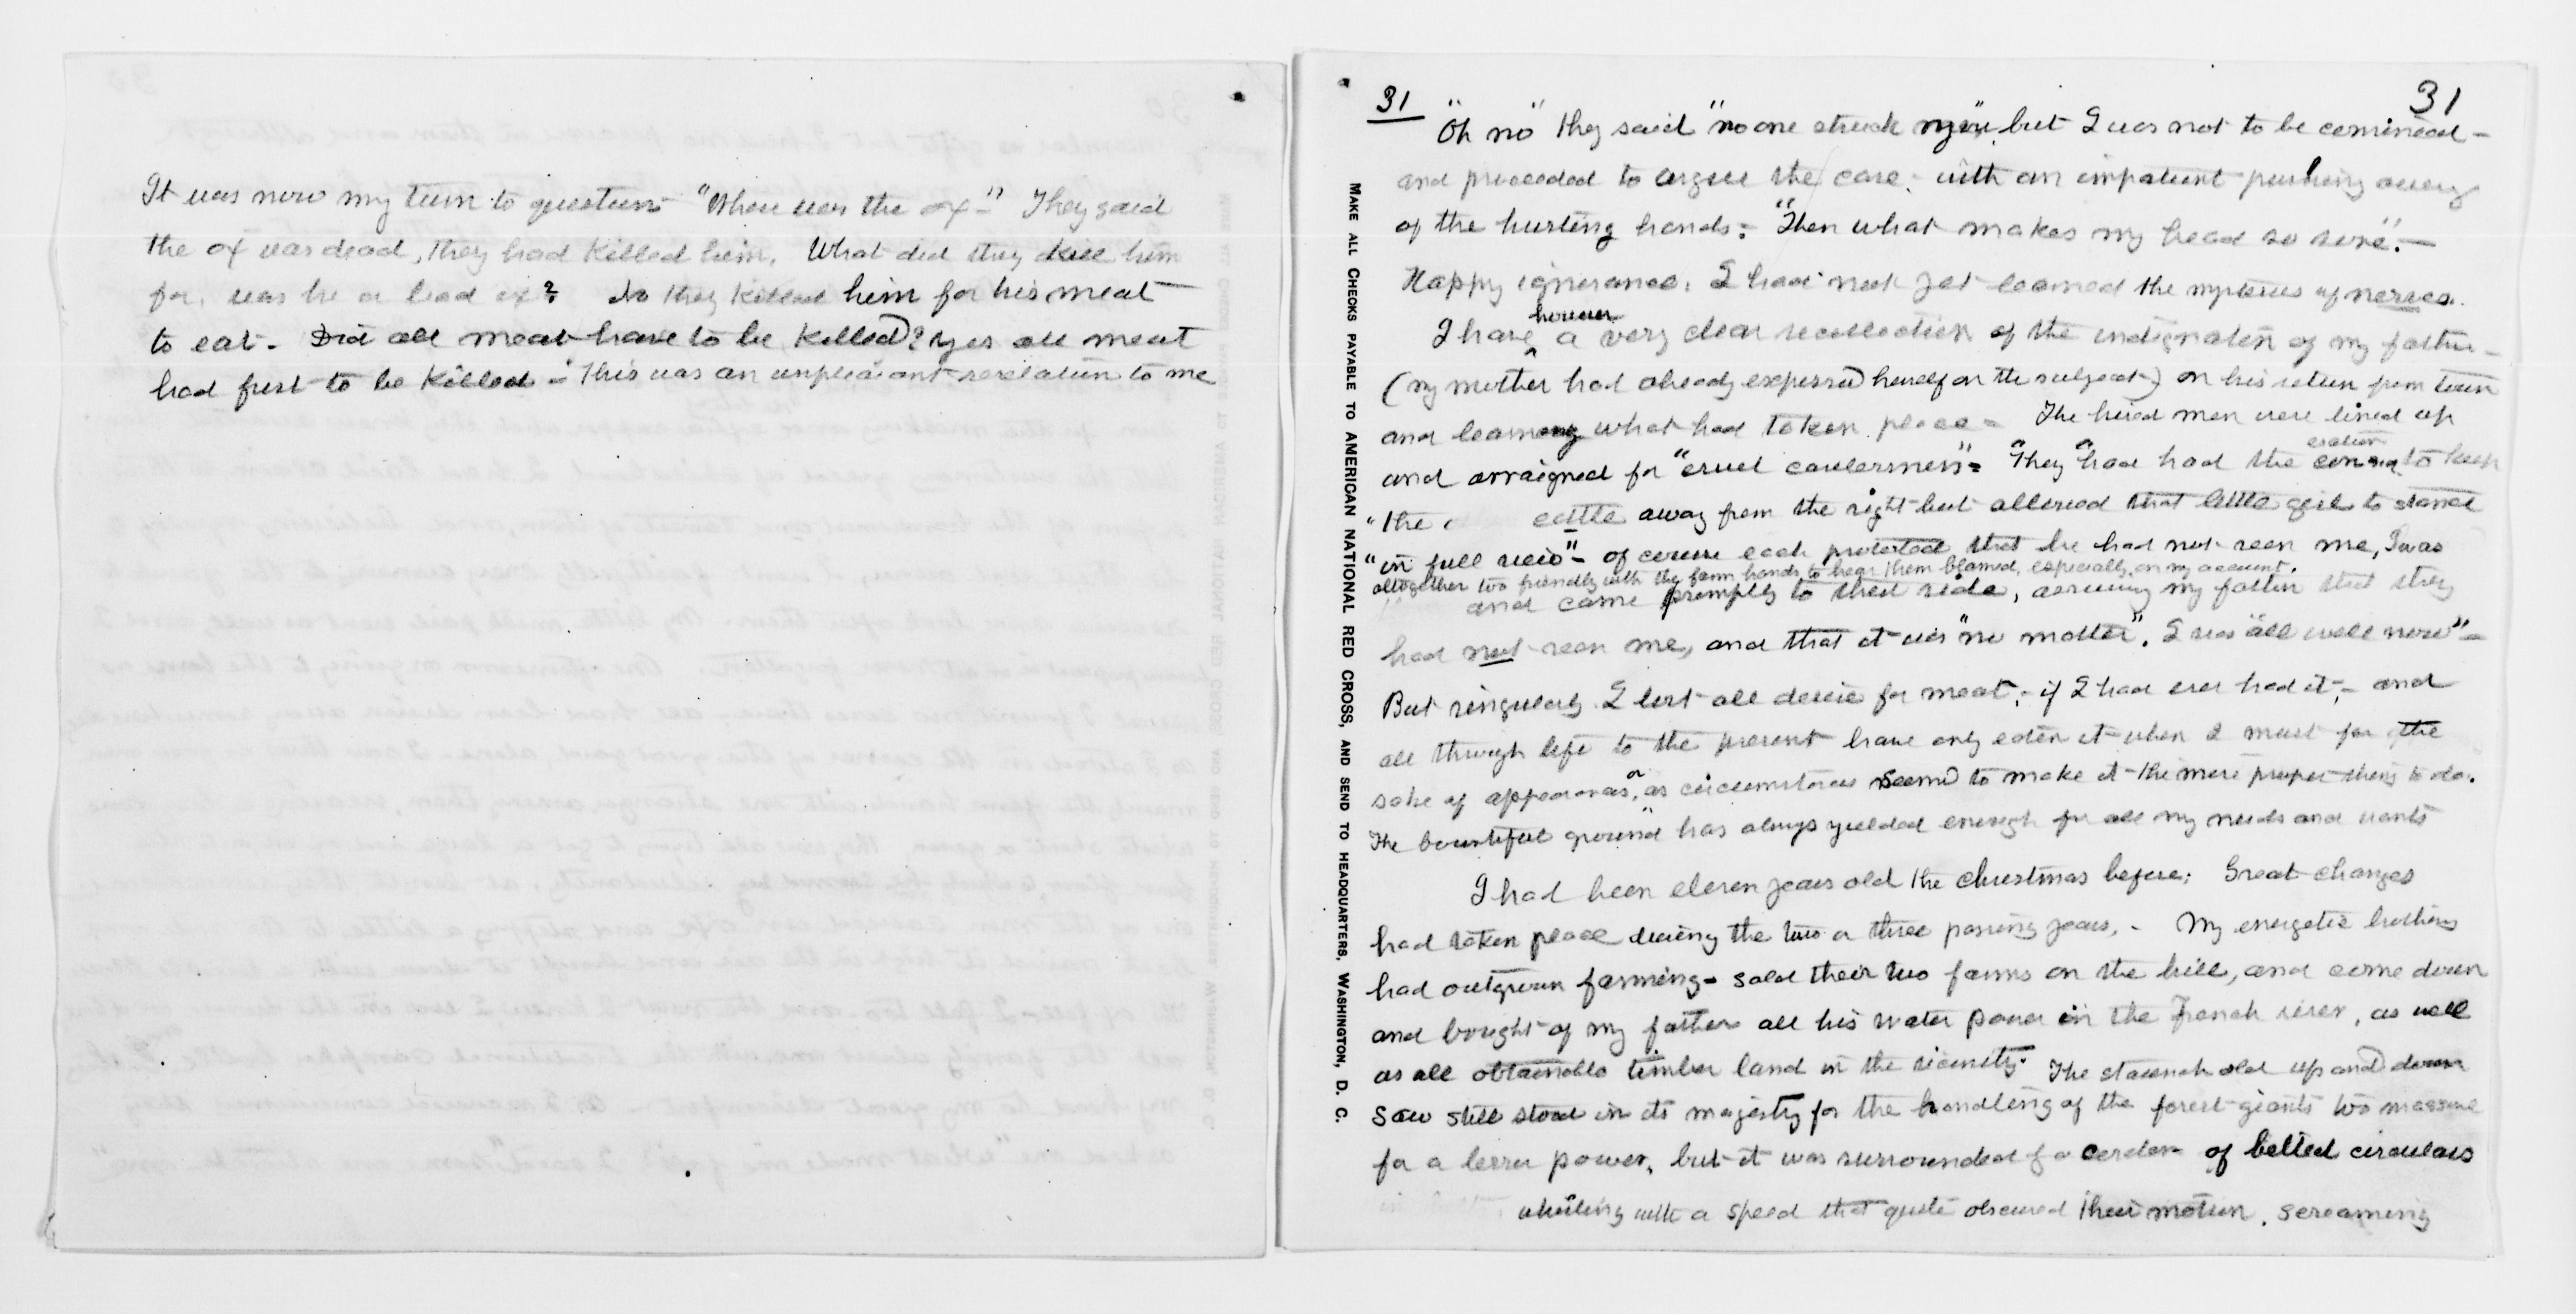 It was now my turn to question "Where was the ox -" They said
the ox was dead, they had killed him. What did they kill him
for, was he a bad ox? No they killed him for his meat
to eat. Did all meat have to be killed? Yes all meat
had first to be killed - This was an unpleasant revelation to me
31
31
"Oh no" they said "no one struck you", but I was not to be convinced -
and proceeded to argue the case, with an impatient pushing away
of the hurting hands: "Then what makes my head so sore". -
Happy ignorance, I had not yet learned the mysteries of nerves.
I have however a very clear recollection of the indignation of my father -
(my mother had already expressed herself on the subject) on his return from town
and learning what had taken place - The hired men were lined up
and arraigned for "cruel carelessness" - "They had had the to keep
"the cattle away from the sight but allowed that little girl to stand
"in full view" - of course each protested that he had not seen me, I was
altogether too friendly with the farm hands to hear them blamed, especially on my account.
and came promptly to their side, assuring my father that they
had not seen me, and that it was "no matter". I was "all well now" -
But singularly I lost all desire for meat, - if I had ever had it, - and
all through life to the present have only eaten it when I must for the
sake of appearances, or as circumstances seemed to make it the more proper thing to do.
The bountiful ground has always yielded enough for all my needs and wants
I had been eleven years old the Christmas before; Great changes
had taken place during the two or three passing years. - My energetic brothers
had outgrown farming - sold their two farms on the hill, and come down
and bought of my father all his water power in the French river, as well
as all obtainable timber land in the vicinity. The staunch old up and down
saw still stood in its majesty for the handling of the forest giants too massive
for a lesser power, but it was surrounded by a cordon of belted circulars
whirling with a speed that quite obscured their motion, screaming
MAKE ALL CHECKS PAYABLE TO AMERICAN NATIONAL RED CROSS, AND SEND TO HEADQUARTERS, WASHINGTON, D. C.